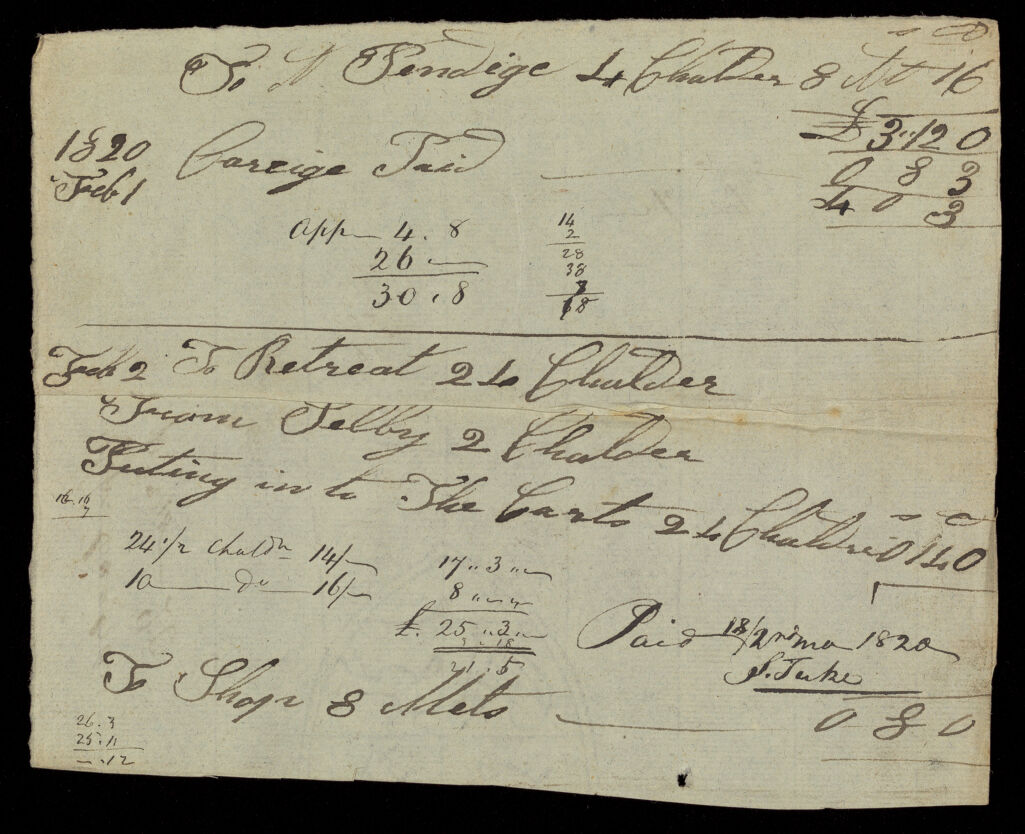 s D
To A Pendige 4 Chalder 8 At 16
£ 3,,12 0
1820 Careige Paid 0 8 3
Feb 1
4 0 3
App 4 . 8
26 —
30 . 8
14
2
28
38
3
68
Feb 2 To Retreat 24 Chalder
From Selby 2 Chalder
Puting in to The Carts 24 Chaldre 0 14 0
16 . 16
7
24 1/2 Chaldn 14/— 17 ,, 3 ,, —
10 — do 16/— 8 ,, — ,, —
£. 25 ,, 3 ,, —
3 . 18
21 . 5
Paid 18/2nd mo 1820
S. Tuke
To Shop 8 Mets — 0 8 0
26 . 3
25 . 11
— . 12